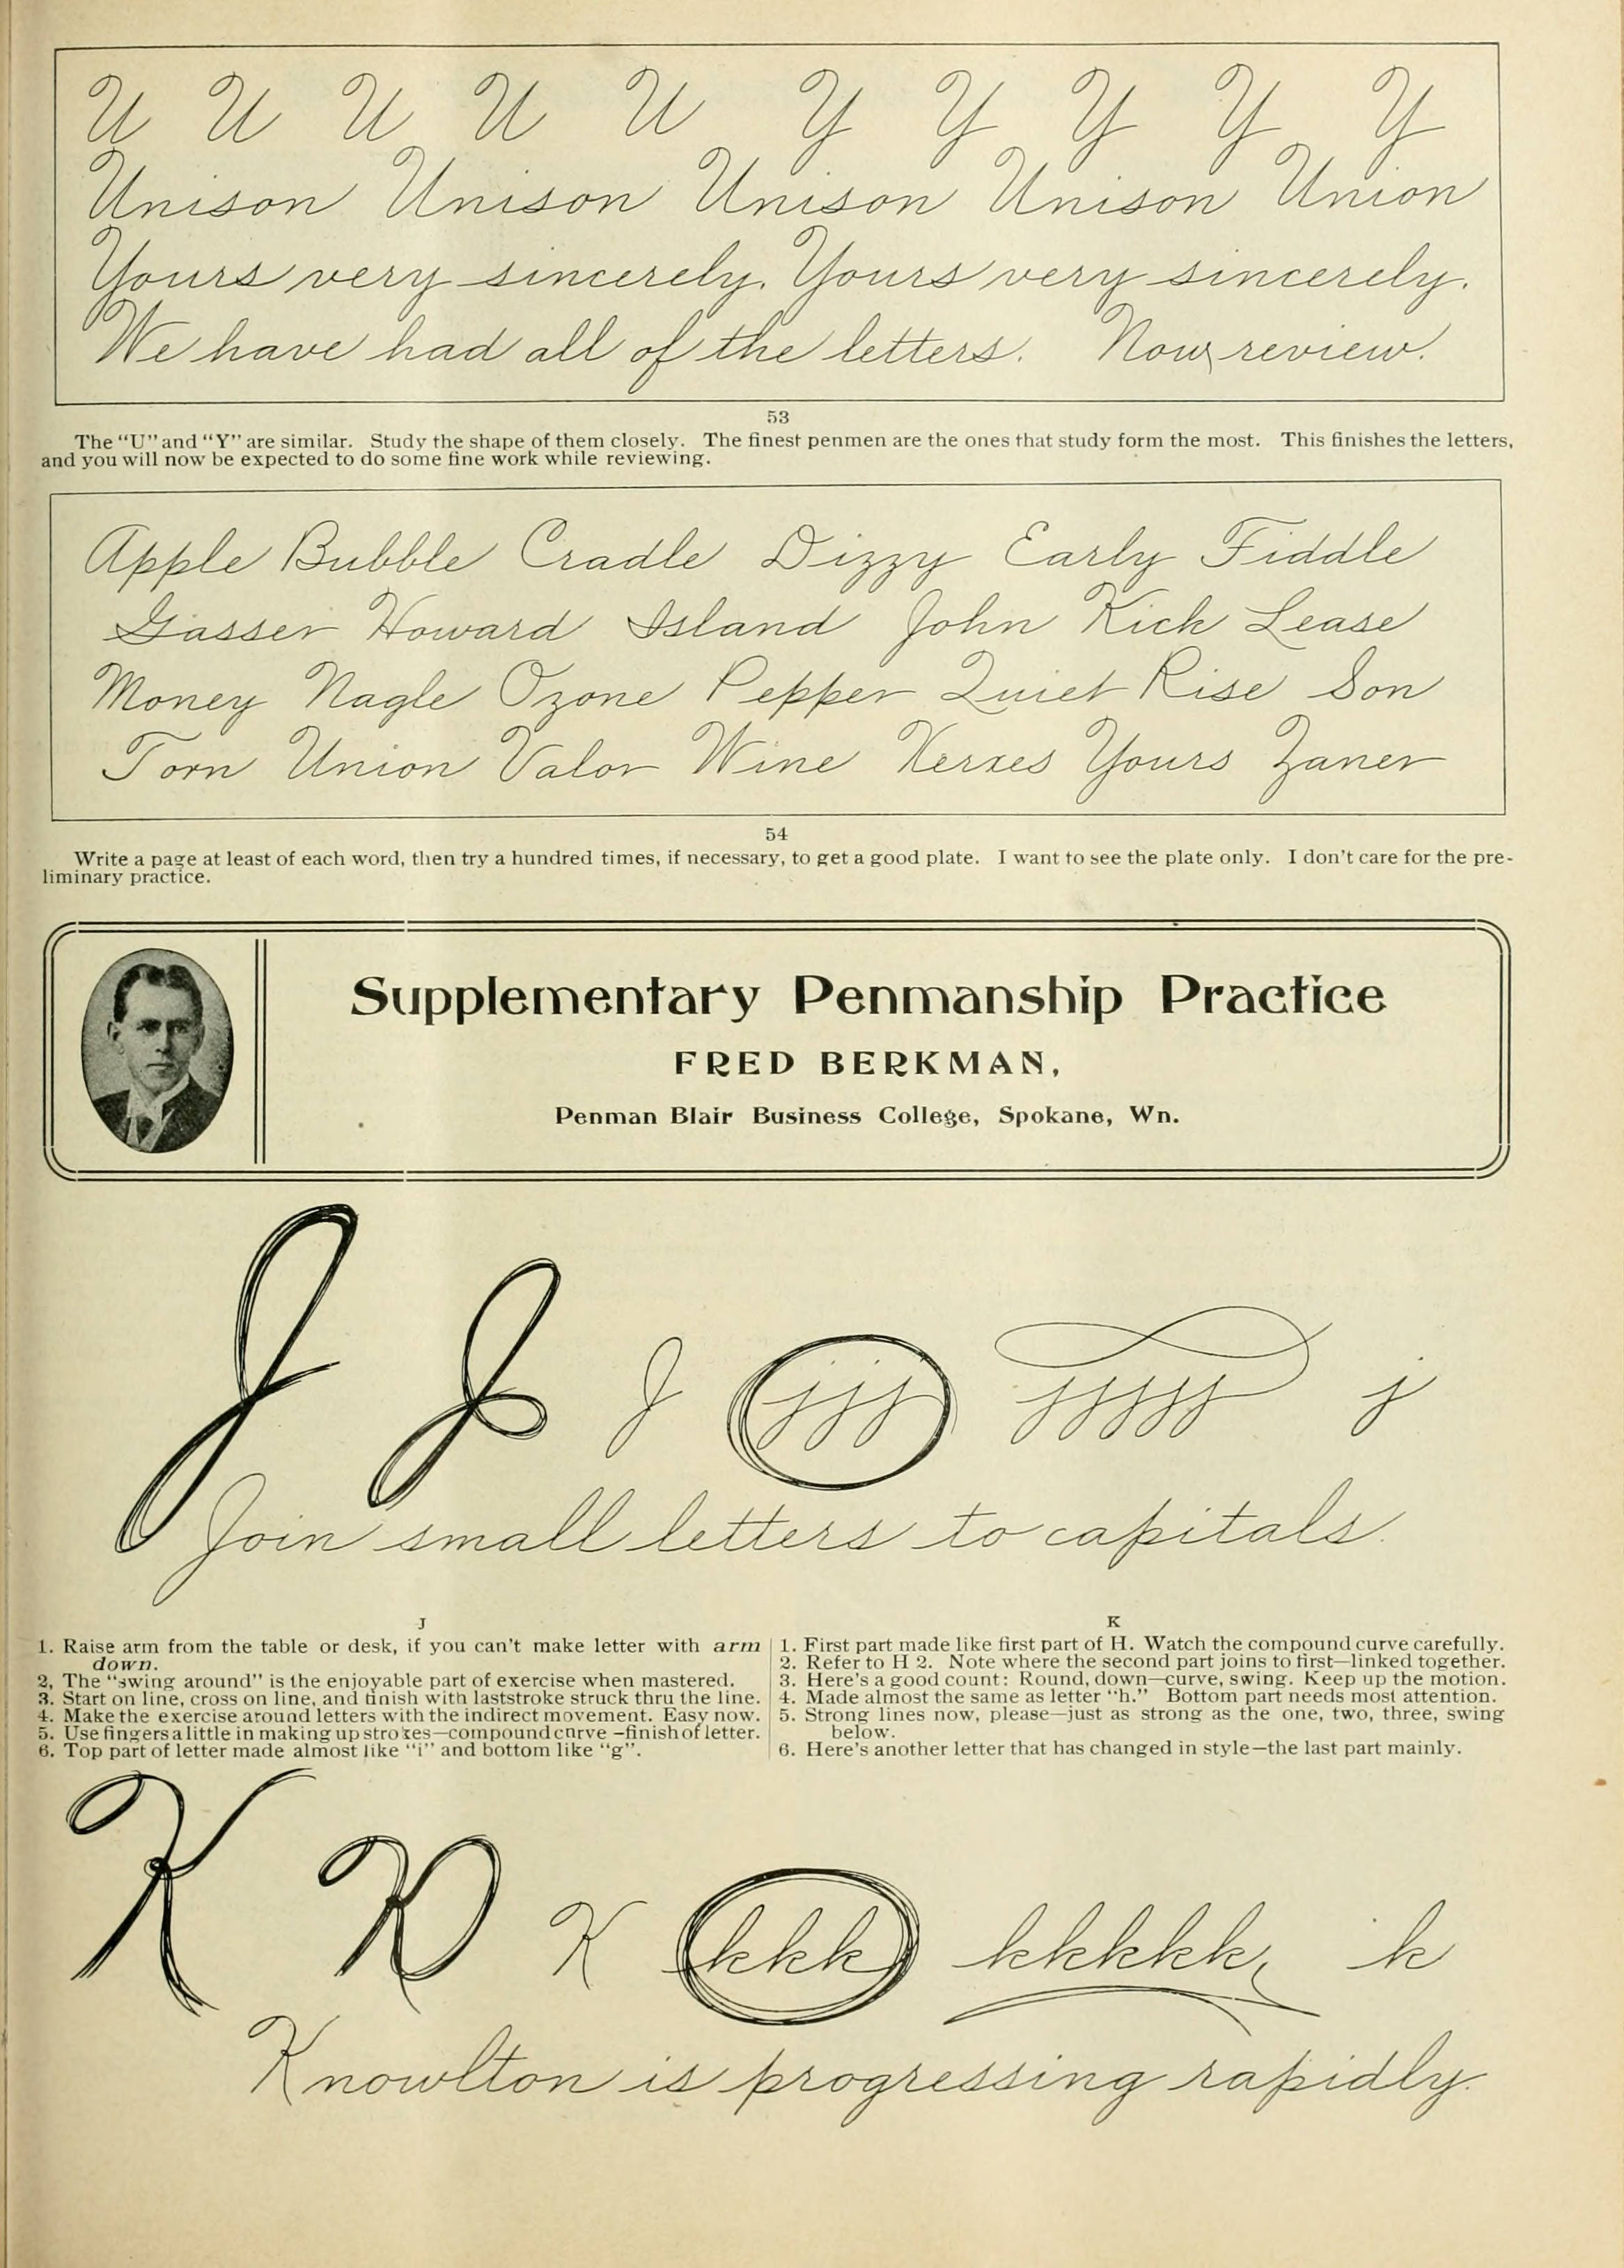 U U U U U Y Y Y Y Y
Unison Unison Unison Unison Union
Yours very sincerely. Yours very sincerely.
We have had all of the letters. Now review.
53
The "U" and "Y" are similar. Study the shape of them closely. The finest penmen are the ones that study form the most. This finishes the letters,
and you will now be expected to do some fine work while reviewing.
Apple Bubble Cradle Dizzy Early Fiddle
Gasser Howard Island John Kick Lease
Money Nagle Ozone Pepper Quiet Rise Son
Torn Union Valor Wine Xerxes Yours Zaner
54
Write a page at least of each word, then try a hundred times, if necessary, to get a good plate. I want to see the plate only. I don't care for the pre-
liminary practice.
Supplementary Penmanship Practice
FRED BERKMAN,
Penman Blair Business College, Spokane, Wn.
J J J jjj jjjjj j
Join small letters to capitals.
J
1. Raise arm from the table or desk, if you can't make letter with arm
down.
2, The "swing around" is the enjoyable part of exercise when mastered.
3. Start on line, cross on line, and finish with laststroke struck thru the line.
4. Make the exercise around letters with the indirect movement. Easy now.
5. Use fingers a little in making up strokes—compound curve—finish of letter.
6. Top part of letter made almost like "i" and bottom like "g".
K
1. First part made like first part of H. Watch the compound curve carefully.
2. Refer to H 2. Note where the second part joins to first—linked together.
3. Here's a good count: Round, down—curve, swing. Keep up the motion.
4. Made almost the same as letter "h." Bottom part needs most attention.
5. Strong lines now, please—just as strong as the one, two, three, swing
below.
6. Here's another letter that has changed in style—the last part mainly.
K K K kkk kkkkk k
Knowlton is progressing rapidly.